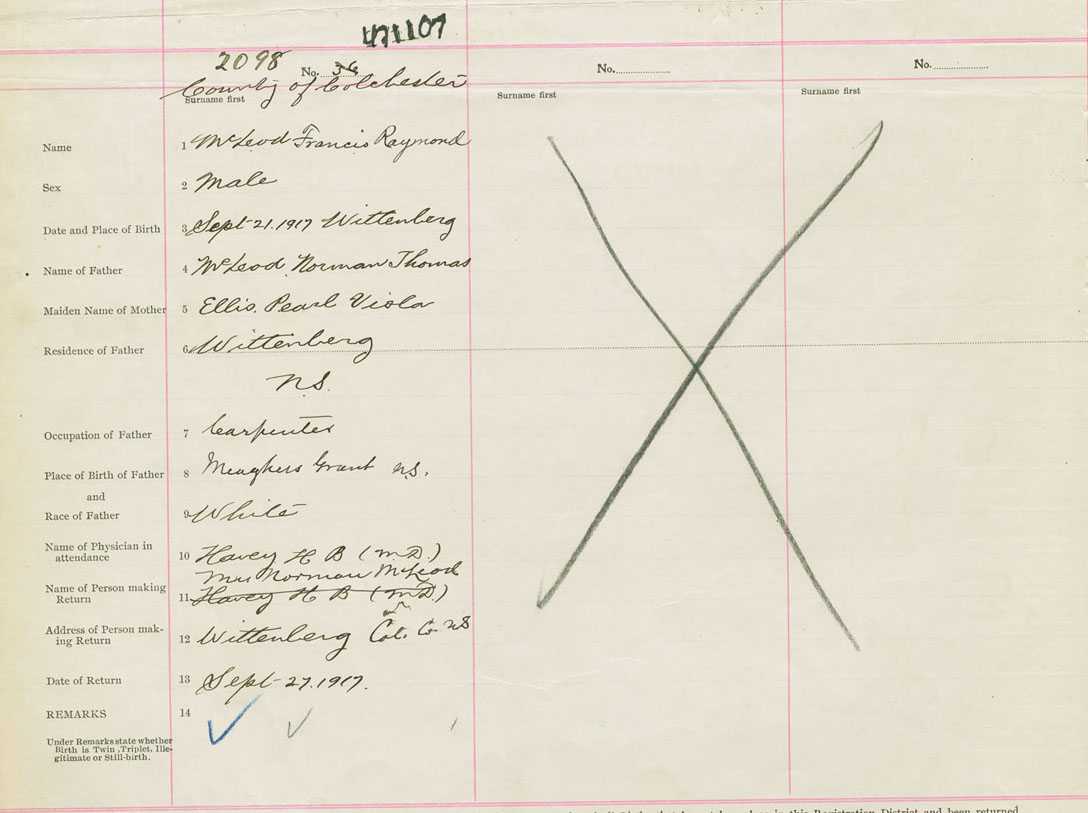 471107
2098 No. 36 No. No.
County of Colchester
Surname first Surname first Surname first
Name 1 McLeod Francis Raymond
Sex 2 Male
Date and Place of Birth 3 Sept 21. 1917 Wittenberg
Name of Father 4 McLeod, Norman Thomas
Maiden Name of Mother 5 Ellis, Pearl Viola
Residence of Father 6 Wittenberg
N.S.
Occupation of Father 7 Carpenter
Place of Birth of Father 8 Meaghers Grant N.S.
and
Race of Father 9 White
Name of Physician in
attendance 10 Havey H B (M.D.)
Mrs Norman McLeod
Name of Person making
Return 11 Havey H B (M.D.)
Address of Person mak-
ing Return 12 Wittenberg Col. Co. NS
Date of Return 13 Sept 27. 1917.
REMARKS 14
Under Remarks state whether
Birth is Twin, Triplet, Ille-
gitimate or Still-birth.
in this Registration District and been returned